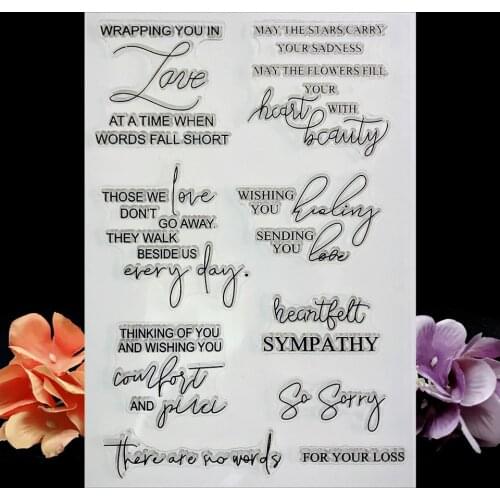 WRAPPING YOU IN
Love
AT A TIME WHEN
WORDS FALL SHORT
MAY THE STARS CARRY
YOUR SADNESS
MAY THE FLOWERS FILL
YOUR
heart WITH
beauty
THOSE WE love
DON'T
GO AWAY.
THEY WALK
BESIDE US
every day.
WISHING
YOU healing
SENDING
YOU love
THINKING OF YOU
AND WISHING YOU
comfort
AND peace
heartfelt
SYMPATHY
So Sorry
There are no words
FOR YOUR LOSS